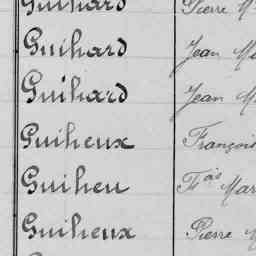 Guihard Pierre M
Guihard Jean Ma
Guihard Jean M
Guiheux François
Guiheu Fᵒⁱˢ Mar
Guiheux Pierre M